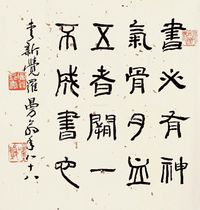 書必有神
氣骨肉血
五者闕一
不成書也
愛新覺羅曼翁年八十八